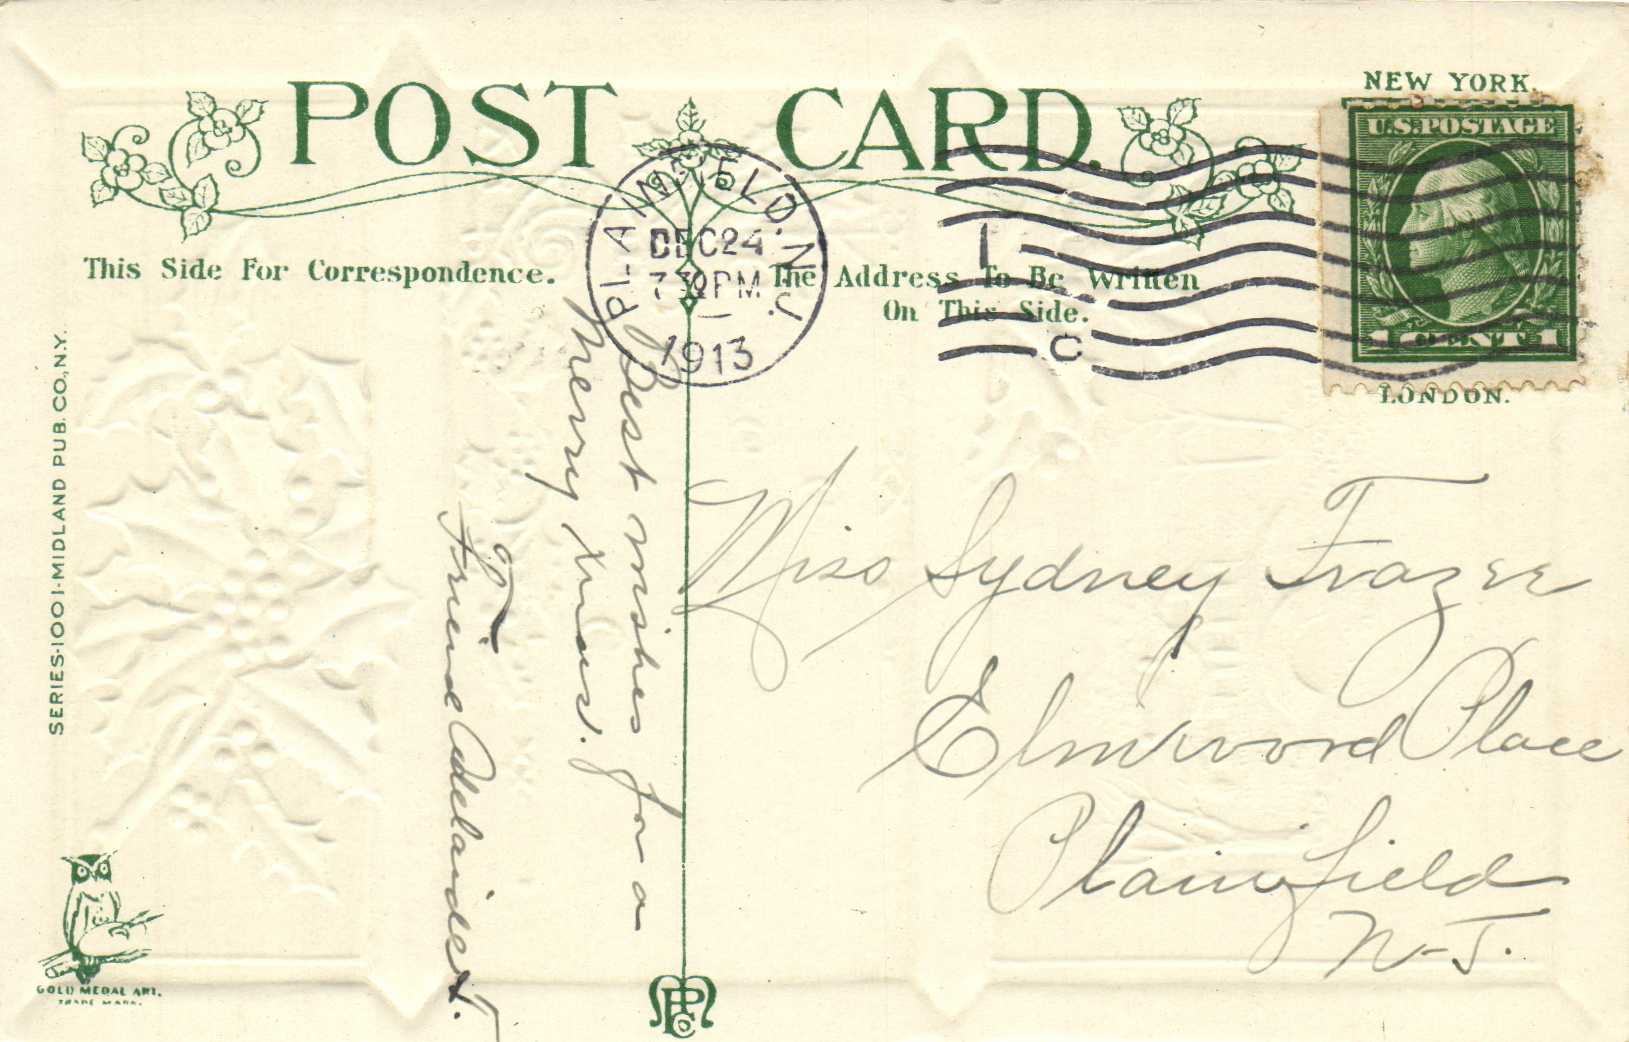 POST CARD.
NEW YORK.
U.S. POSTAGE
1 CENT 1
LONDON.
PLAINFIELD, N.J.
DEC 24
7 30 PM
1913
C
This Side For Correspondence.
The Address To Be Written
On This Side.
Best wishes for a
Merry Xmas.
Friend Adelaide
Miss Sydney Frazee
Elmwood Place
Plainfield
N-J.
SERIES-1001-MIDLAND PUB. CO., N.Y.
GOLD MEDAL ART.
TRADE MARK.